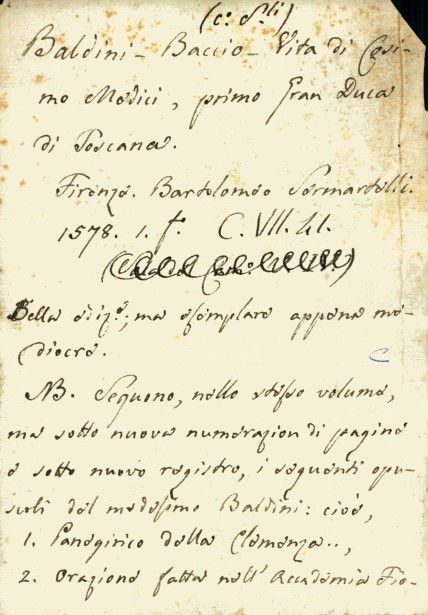 (c. 8.li)
Baldini - Baccio - Vita di Cosi-
mo Medici, primo Gran Duca
di Toscana.
Firenze. Bartolomeo Sermartelli.
1578. 1. f.o C. VII.
Bella ediz.e; ma esemplare appena me-
diocre.
NB. Seguono, nello stesso volume,
ma sotto nuova numerazion di pagine
e sotto nuovo registro, i seguenti opu-
scoli del medesimo Baldini: cioè,
1. Panegirico della Clemenza..,
2. Orazione fatta nell' Accademia Fio-